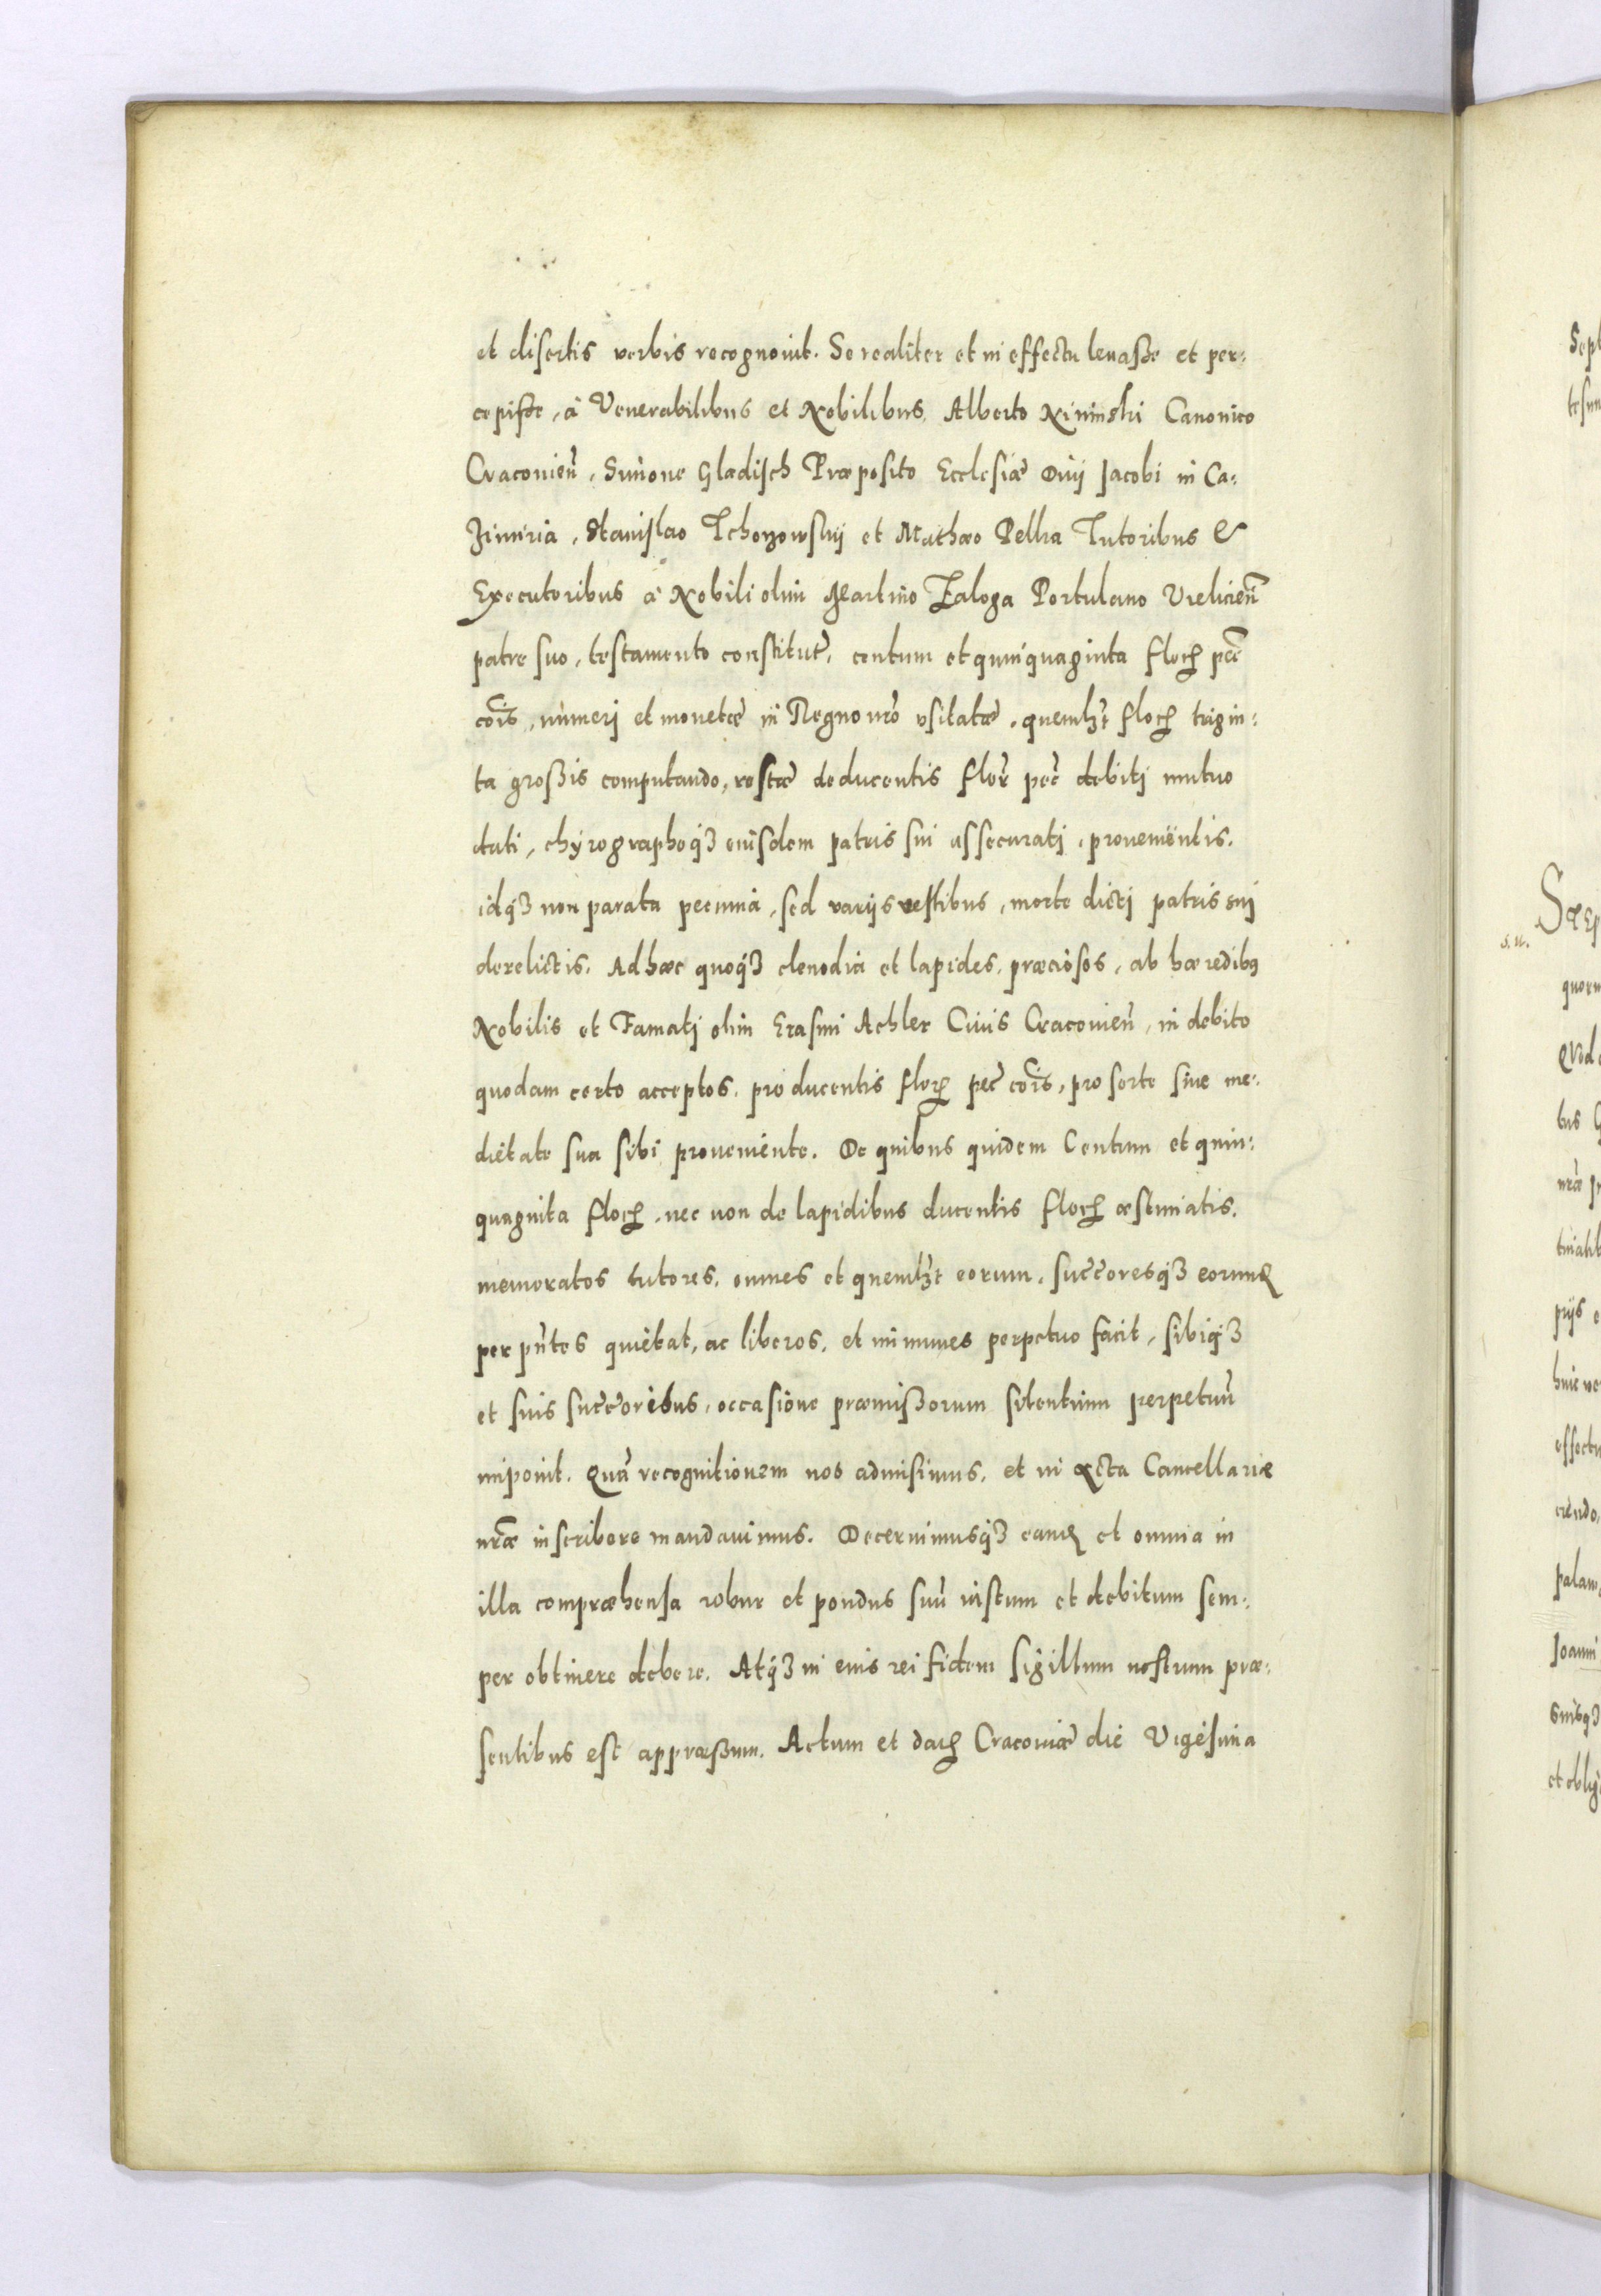 et disertis verbis recognouit. Se realiter et in effectu leuaße et per:
cepiße, à Venerabilibus et Nobilibus, Alberto Nininski Canonico
Cracouieñ, Simone Gladisch Præposito Ecclesiæ Diuij Jacobi in Ca:
zimiria, Stanislao et Mathæo Pellia Tutoribus &
Executoribus à Nobili olim Martino Zaloga Portulano Vieliciеñ
patre suo, testamento constitut̃, centum et quinquaginta floꝝ pec̃
cõis, numeri et monetæ in Regno nr̃o vsitatæ, quemlꝫt floꝝ trigin:
ta großis computando, restæ de ducentis flor̃ pec̃ debitj mutuo
dati, chyrographoqꝫ eiusdem patris sui assecuratj, prouenientis.
idqꝫ non parata pecunia, sed varijs vestibus, morte dictj patris suj
derelictis. Ad hæc quoqꝫ clenodia et lapides, præciosos, ab hæredibꝰ
Nobilis et Famatj olim Erasmi Achler Ciuis Cracouieñ, in debito
quodam certo acceptos, pro ducentis floꝝ pec̃ cõis, pro sorte siue me:
dietate sua sibi proueniente. De quibus quidem Centum et quin:
quaginta floꝝ, nec non de lapidibus ducentis floꝝ æstimatis,
memoratos tutores, omnes et quemlꝫt eorum, succ̃oresqꝫ eorundem
per pñtes quietat, ac liberos, et immunes perpetuo facit, sibiqꝫ
et suis succ̃oribus, occasione præmißorum silentium perpetuũ
imponit. Quã recognitionem nos admisimus, et in acta Cancellariæ
nr̃æ inscribere mandauimus. Decernimusqꝫ eandem et omnia in
illa compræhensa robur et pondus suũ iustum et debitum sem:
per obtinere debere. Atqꝫ in eius rei fidem sigillum nostrum præ:
sentibus est appræßum. Actum et datꝫ Cracouiæ die Vigesima